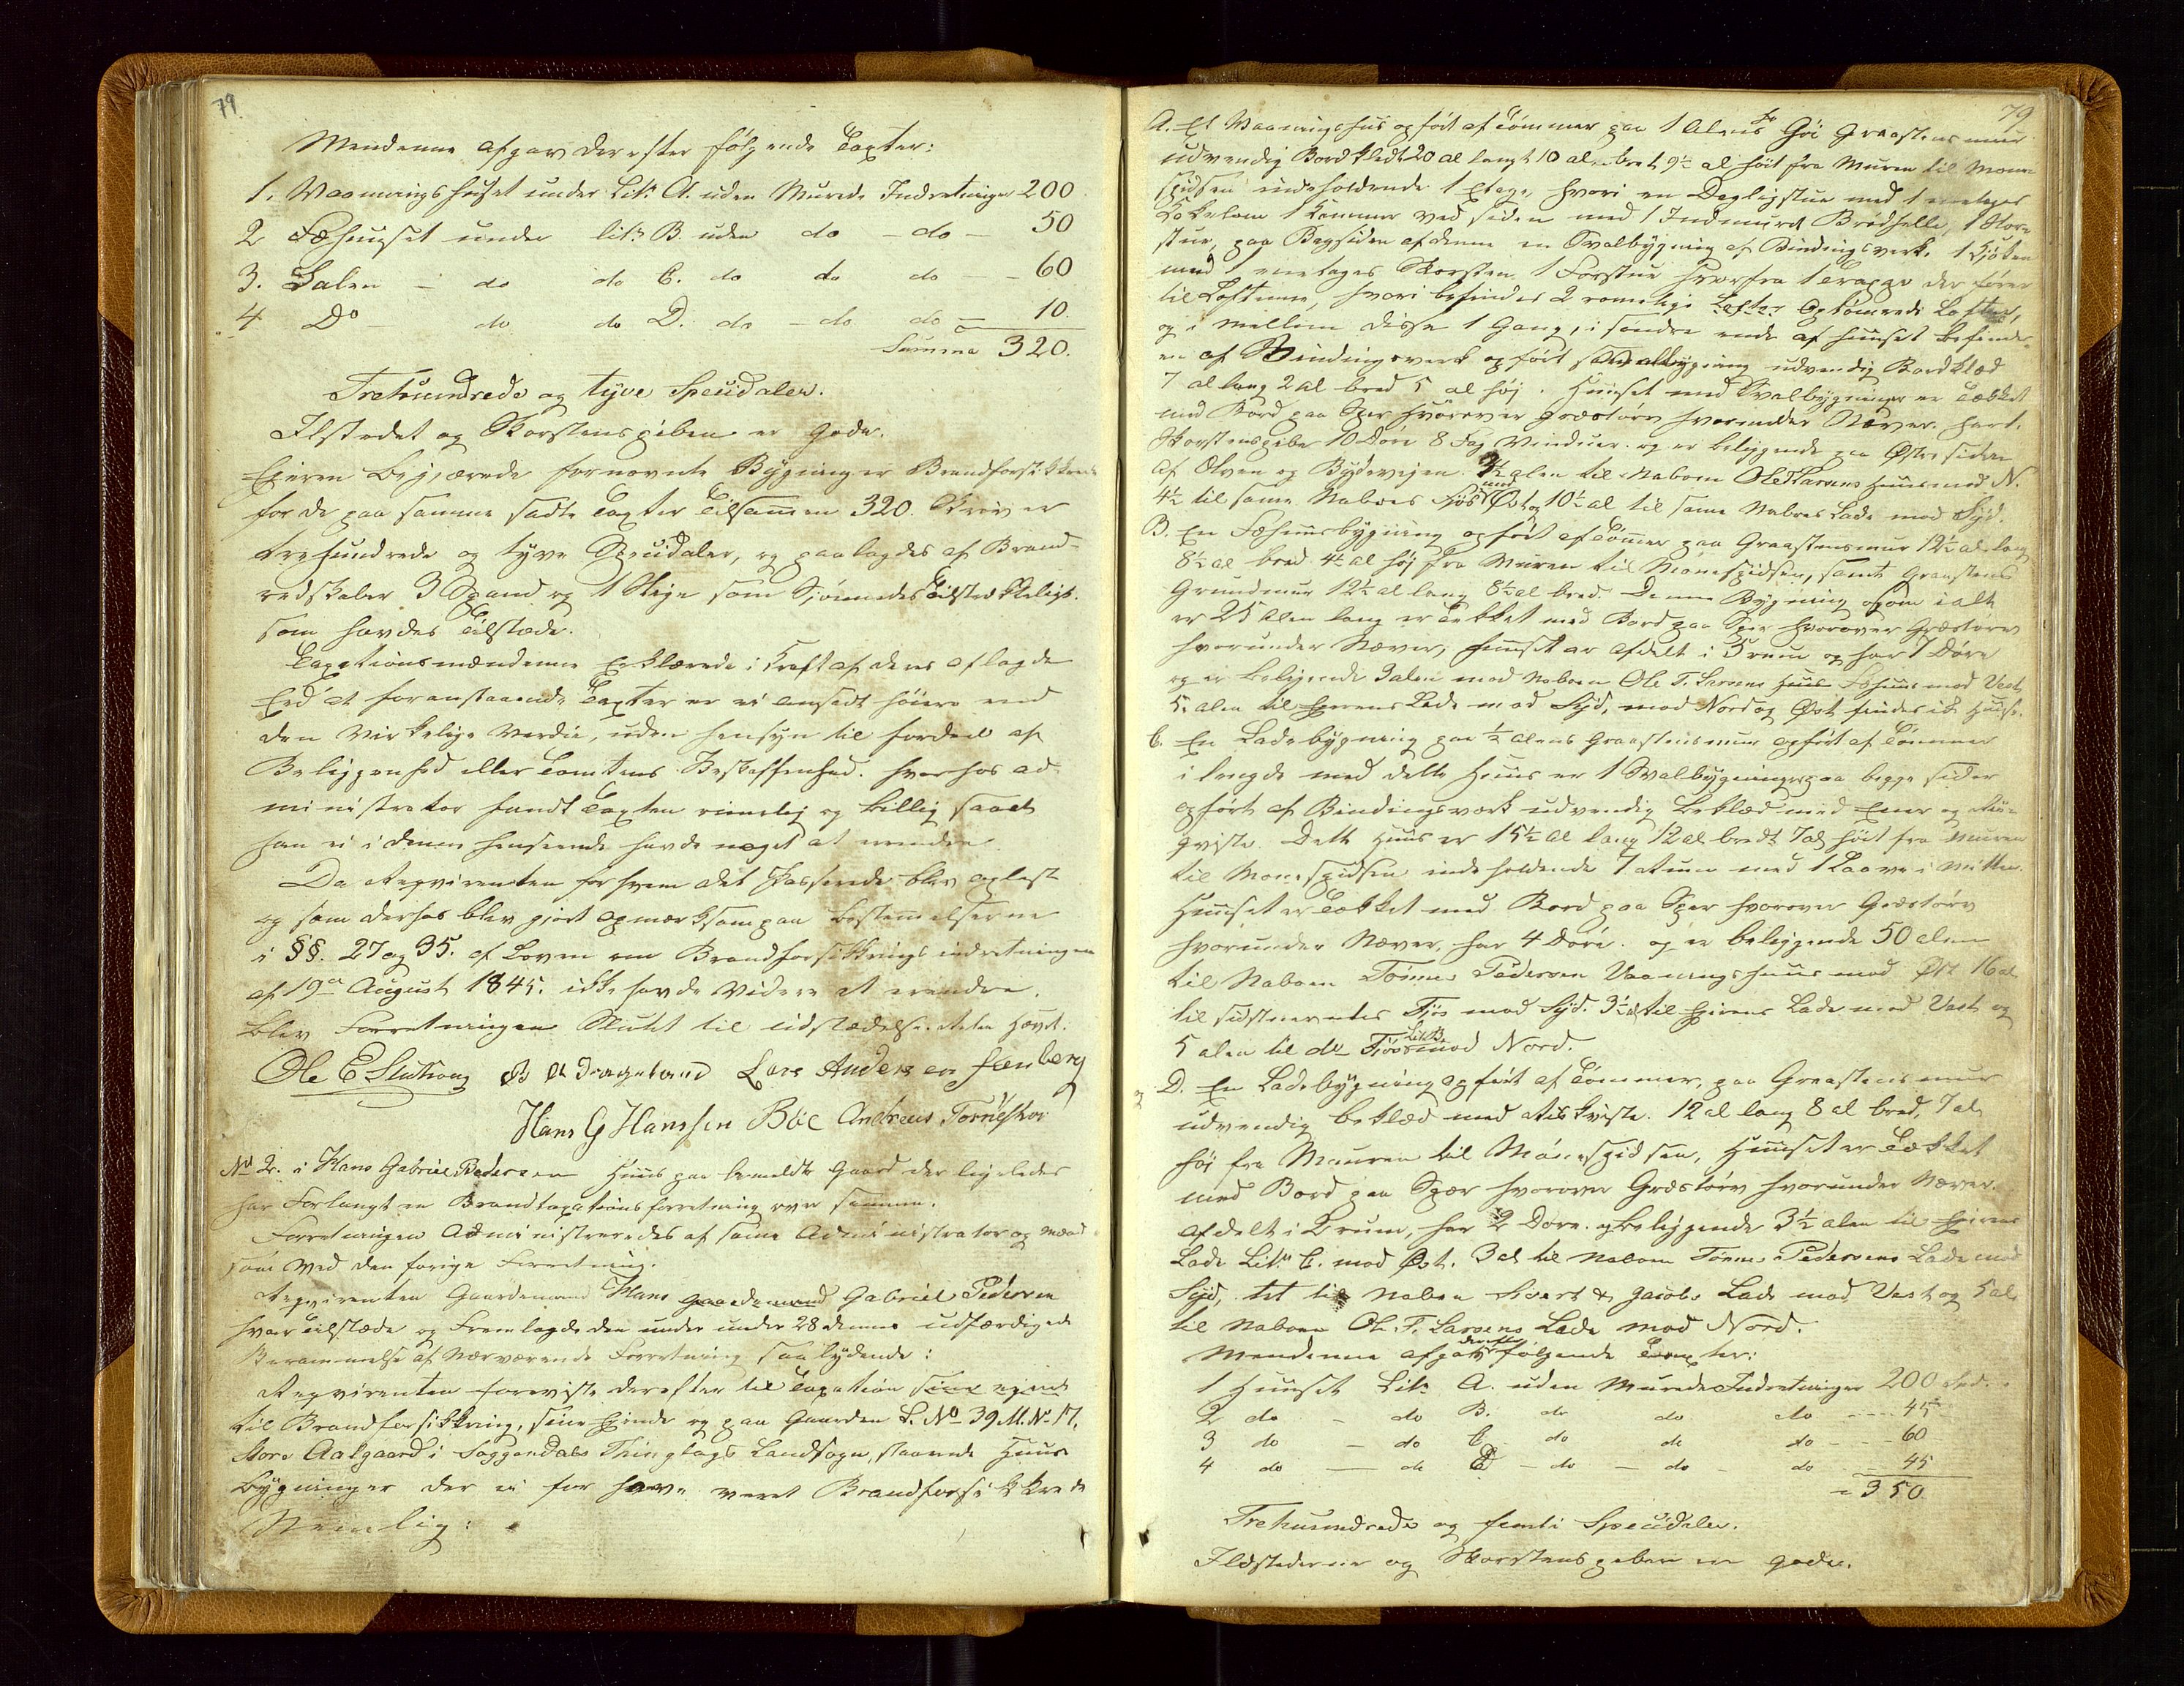 79.
Mendenne afgav derefter følgende Taxter:
1. Vaaningshuset under Litr. A. uden Murede Indretninger 200
2 Fæhuuset under litr. B. uden do - do - 50
3. Laden - do do C. do do do - - 60
4 Do - do do D. do - do do - 10.
Summa 320.
Trehundrede og tyve Speciédaler.
Ilstedet og Skorstenspiben er gode.
Eieren begjærede fornævnte Bygninger Brandforsikkrede
for de paa samme satte Taxter Tilsammen 320. skriver
trehundrede og tyve Speciedaler, og paalagdes af Brand-
redskaber 3 Spand og 1 Stige som Sjønnedes Tilstrækkeligt.
som havdes Tilstæde.
Taxationsmændenne Erklærede i Kraft af deres aflagde
Eed at foranstaaende Taxter er ei ansadt høiere end
den Virkelige Værdie, uden hensyn til fordeel af
Beliggenhed eller Tomtens Beskaffenhed. hverhos ad-
ministrator fandt Taxten rimelig og billig saaat
han ei i denne henseende havde noget at erindre.
Da Reqvirenten for hvem det Passerede blev oplest
og som derhos blev gjort opmerksom paa bestemelserne
i §§. 27 og 35. af Loven om Brandforsikkrings indretningen
af 19de August 1845. ikke havde videre at erindre.
blev Forretningen Sluttet til udstædelse. Retten Hævet.
Ole E Slutsong Lars Andersen
Hans G Hanssen Böe Andreas
No 2. i Hans Gabriel Pedersen Huus paa bemeldte Gaard der ligeledes
har Forlangt en Brandtaxationsforretning over samme.
Forretningen Administreredes af samme Administrator og Mænd
som ved den forige Forretning.
Reqvirenten Gaardemand Hans Gaardemand Gabriel Pedersen
hvar Tilstæde og Fremlagde den under under 28 dennes udfærdigede
Berammelse af Nærværende Forretning saa lydende:
Reqvirenten foreviste derefter til Taxation sine egne
til Brandforsikkring, sine Eiende og paa Gaarden L. No 39 M. No 17.
Store Aatgaard i Soggendals Thinglags Landsogn, staaende Huus
bygninger der ei før have været Brandforsikkrede
Nemlig:
79
A. Et Vaaningshus opført af Tømmer paa 1 Alens Høi Graastensmuur
udvendig Bordklædt 20 al langt 10 al. bret 9½ al høit fra Muren til Møne-
spidsen indeholdende 1 Etage, hvori en Dagligstue med 1 eetages
Kakelovn 1 Kammer ved siden med 1 Indmuret Brødhelle, 1 Stor-
stue, paa Bagsiden af denne en Svalbygning af Bindingsverk. 1 Kjøken
med 1 eenetages Skorsten 1 Forstue hvorfra 1 Trappe der fører
til Lofterne, hvori befindes 2 rommelige Lofter Optømrede Lofter,
og i mellem disse 1 Gang, i søndre ende af huuset befinder
en af Bindingsverk opført Svalbygning udvendig Bordklæd
7 al lang 2 al bred 5 al høj. Huuset med Svalbygninger er Tækket
med Bord paa Sper hvorover græstørv hvorunder Næver. har 1.
Skorstenspibe 10 Döre 8 Fag Vinduer. og er beliggende paa Østre siden
af Elven og Bygdeveien. 3½ alen til Naboen Ole Larsens Huus mod N.
4½ til same Naboes Fjös mod Øst og 10½ al til same Naboes Lade mod Syd.
B. En Fæhuusbygning opført af Tømmer paa Graastensmuur 12½ al. lang
8½ al bred 4½ al høj fra Muren til Mønespidsen, samt Graastens
Grundmuur 12½ al lang 8½ al bred. Denne Bygning som ialt
er 25 Alen lang er Tekket med Bord paa Sper hvorover Græstørv
hvorunder Næver, huuset er afdelt i 3 rum og har 1 Döre
og er beliggende 3 alen mod Naboen Ole T. Larsens Huus Fæhuus mod Vest,
5. alen til Eierens Lade mod Syd, mod Nord og Øst findes ik Huuse.
C. En Ladebygning paa ½ alens Graastensmuur opført af Tømmer
i lengde med dette Huus er 1 Svalbygninger paa begge sider
opført af Bindingsverk udvendig beklæd med Ener og Riis-
qviste. Dette Huus er 15½ al lang 12 al bredt 7 al høit fra Muren
til Mønespidsen indeholdende 7 Rum med 1 Laave i Mitten
Huuset er Tækket med Bord paa Sper hvorover Græstørv
hvorunder Næver, har 4 Döre. og er beliggende 50 alen
til Naboen Tønnes Pedersens Vaaningshuus mod Øst 16 al
til sidstnevntes Fjøs mod Syd. 3½ al til Eierens Lade mod Vest og
5 alen til do Fjøs Lit: B. mod Nord.
D. En Ladebygning opført af Tømmer, paa Graastensmuur
udvendig beklæd med Riisqviste. 12 al lang 8 al bred, 7 al.
høj fra Muuren til Mønespidsen, Huuset er Tækket
med Bord paa Sper hvorover Græstørv hvorunder Næver.
afdelt i 2 rum, har 2 Döre. og beliggende 3½ alen til Eierens
Lade Litr. C. mod Øst. 3 al til Naboen Tønnes Pedersens Lade mod
Syd, tet til Naboen Sivert & Jacobs Lade mod Vest og 5 al.
til Naboen Ole. T. Larsens Lade mod Nord.
Mendenne afgav derefter følgende Taxter:
1 Huuset Litr. A. uden Murede Indretninger 200 Spd.
2 do - do B. do do do - - - 45
3 do - do C. do do do - - - 60
4 do - do D - do - do do - 45
= 350.
Trehundrede og femti Speciedaler.
Ildstederne og Skorstenspiben er gode.